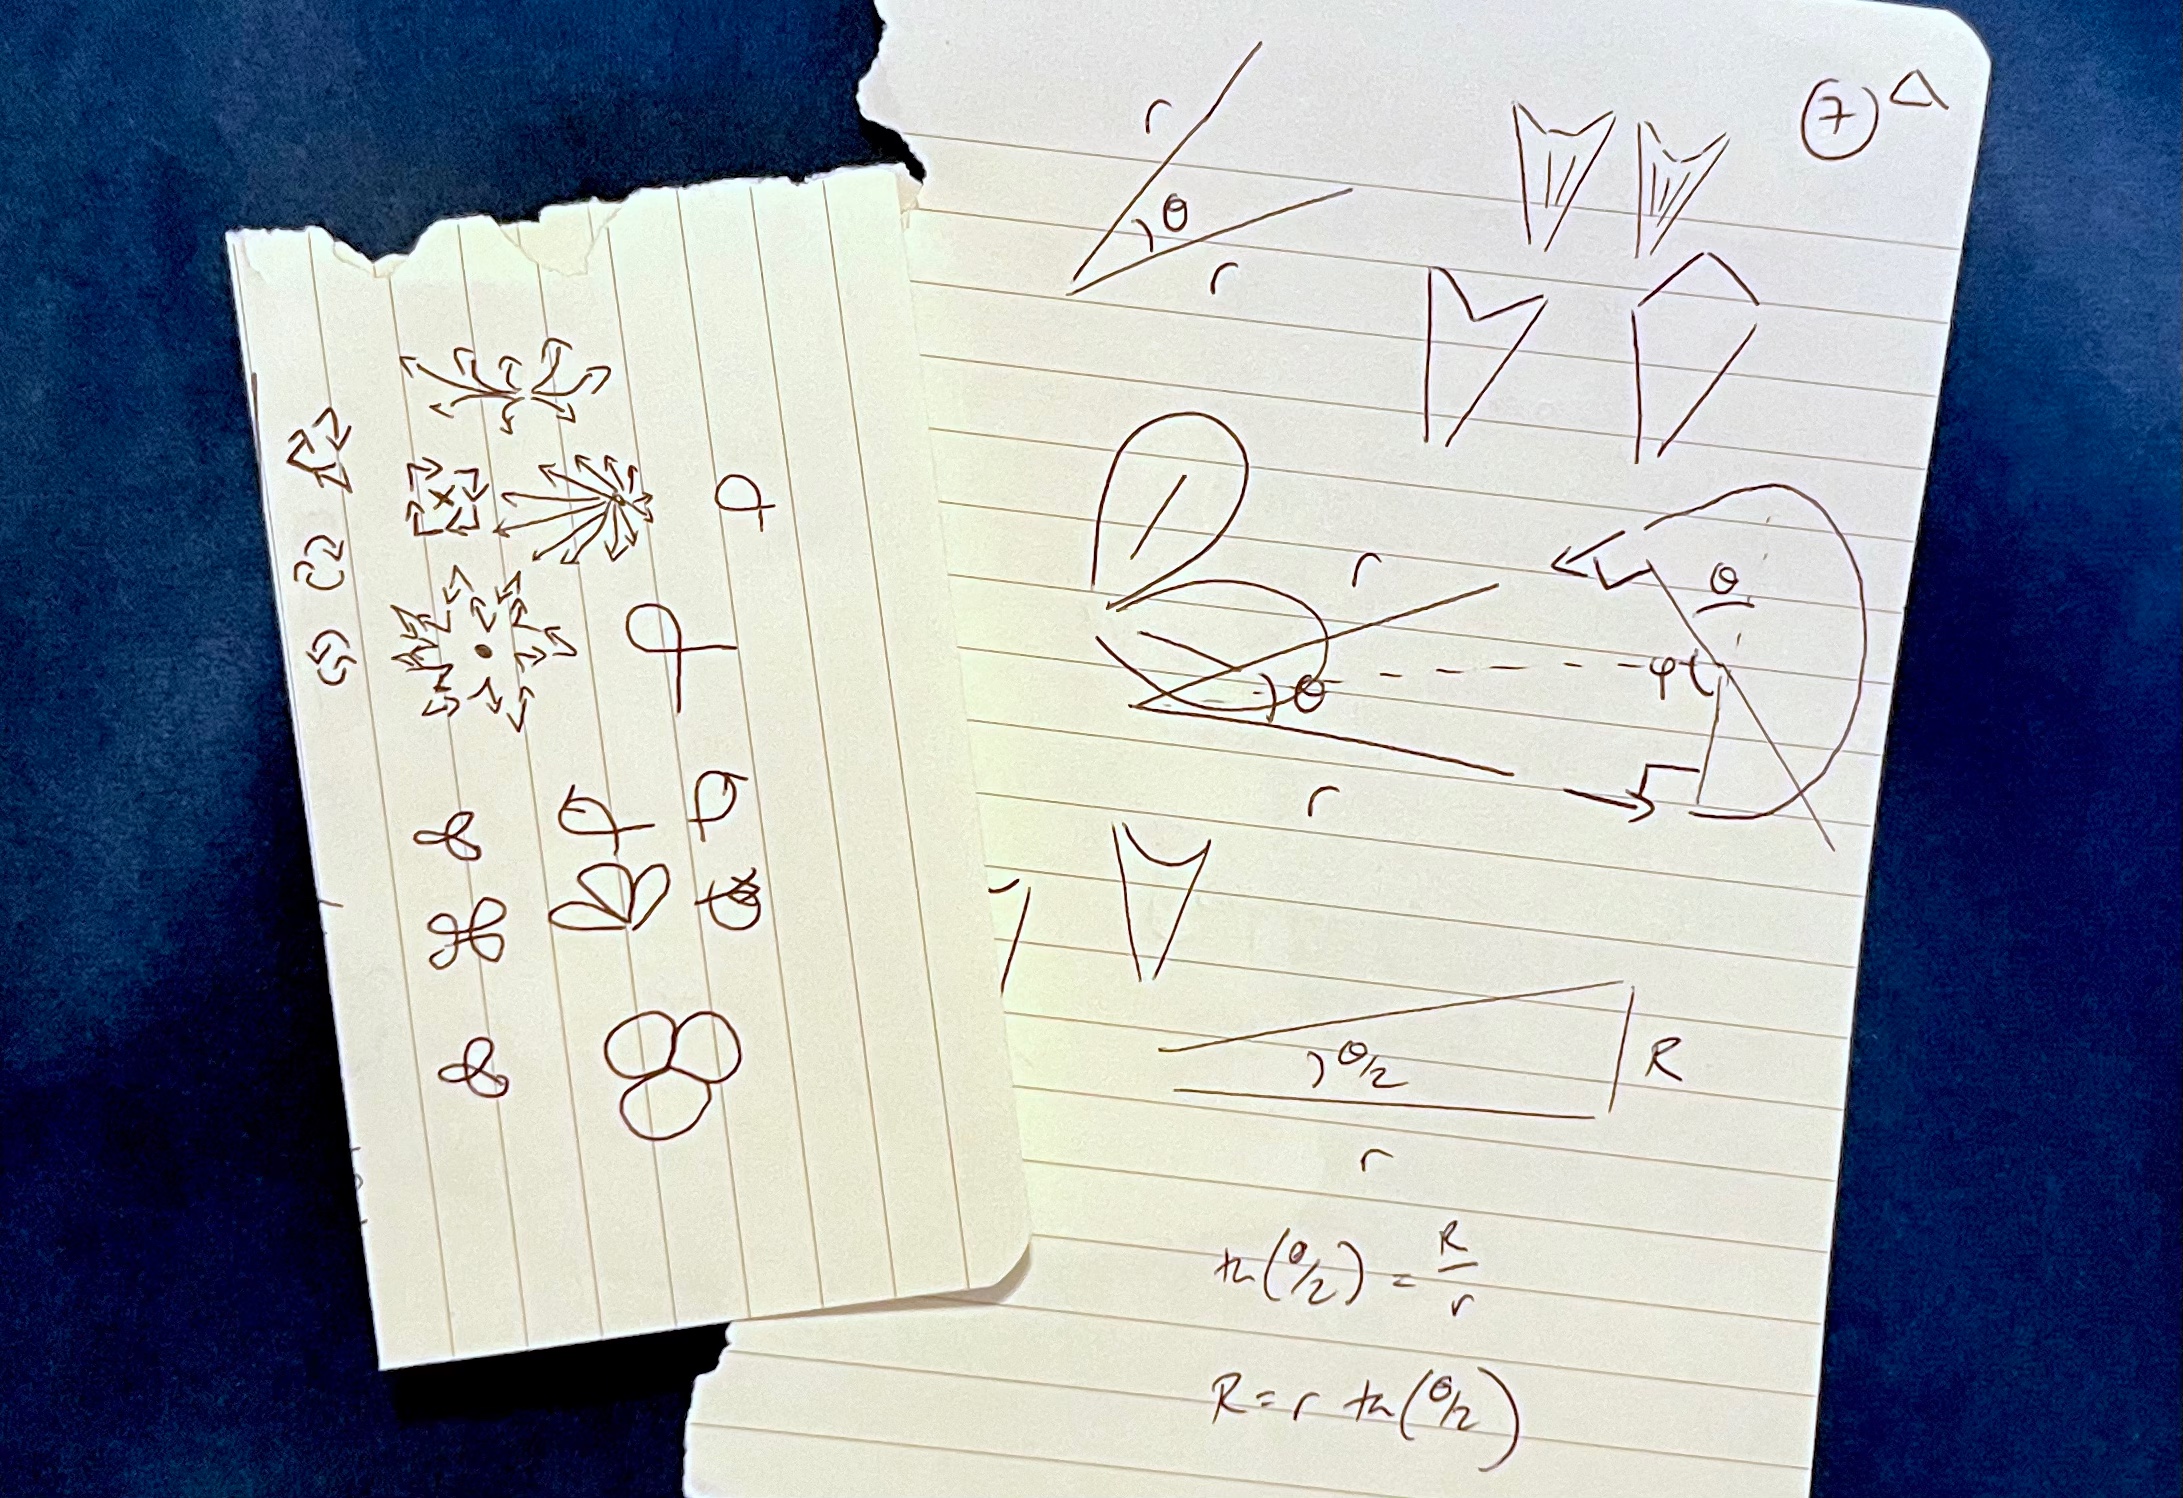 7
r
θ
r
r
θ
θ
φ
r
θ/2
R
r
tn(θ/2) = R/r
R = r tn(θ/2)